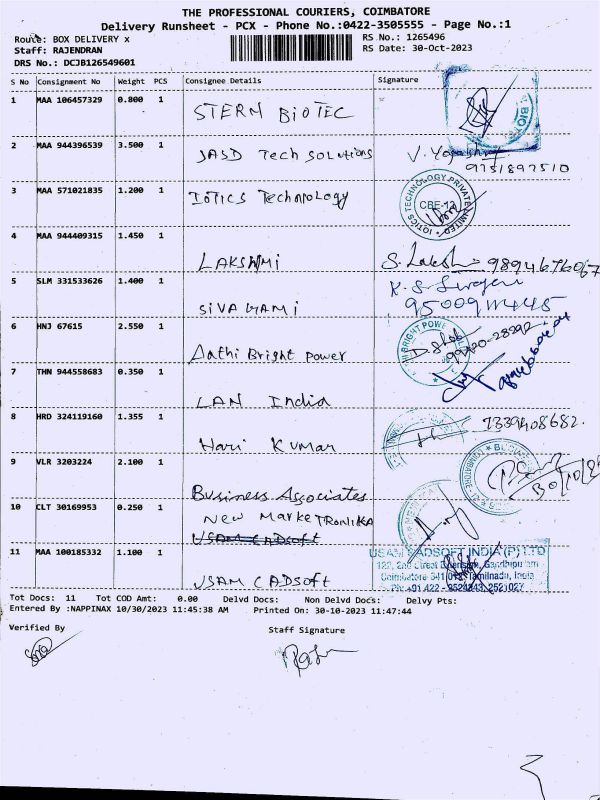 THE PROFESSIONAL COURIERS, COIMBATORE
Delivery Runsheet - PCX - Phone No.:0422-3505555 - Page No.:1
Route: BOX DELIVERY x
RS.No.: 1265496
Staff: RAJENDRAN
RS Date: 30-Oct-2023
DRS No.: DCJB126549601
S No Consignment No Weight PCS Consignee Details Signature
1 MAA 106457329 0.800 1 STERM BIOTEC
2 MAA 944396539 3.500 1 JASD Tech Solutions
9751897510
3 MAA 571021835 1.200 1 IOTICS Technology
IOTICS TECHNOLOGY PRIVATE LIMITED
CBE-12
4 MAA 944409315 1.450 1 LAKSHMI S. Lakshmi 9894676067
5 SLM 331533626 1.400 1 SIVAGAMI
6 HNJ 67615 2.550 1 Aathi Bright power
BRIGHT POWE
7 THN 944558683 0.350 1 LAN India
8 HRD 324119160 1.355 1 Hari Kumar 7339408682.
9 VLR 3203224 2.100 1 Business Associates
30/10/23
10 CLT 30169953 0.250 1 New MarkeTRONIKA
USAM CADSOFT
11 MAA 100185332 1.100 1 USAM CADSOFT
USAM CADSOFT INDIA (P) LTD
122, 2nd Street Gandhipuram
Coimbatore-641 012 Tamilnadu, India
Tot Docs: 11 Tot COD Amt: 0.00 Delvd Docs: Non Delvd Docs: Delvy Pts:
Entered By :NAPPINAX 10/30/2023 11:45:38 AM Printed On: 30-10-2023 11:47:44
Verified By Staff Signature